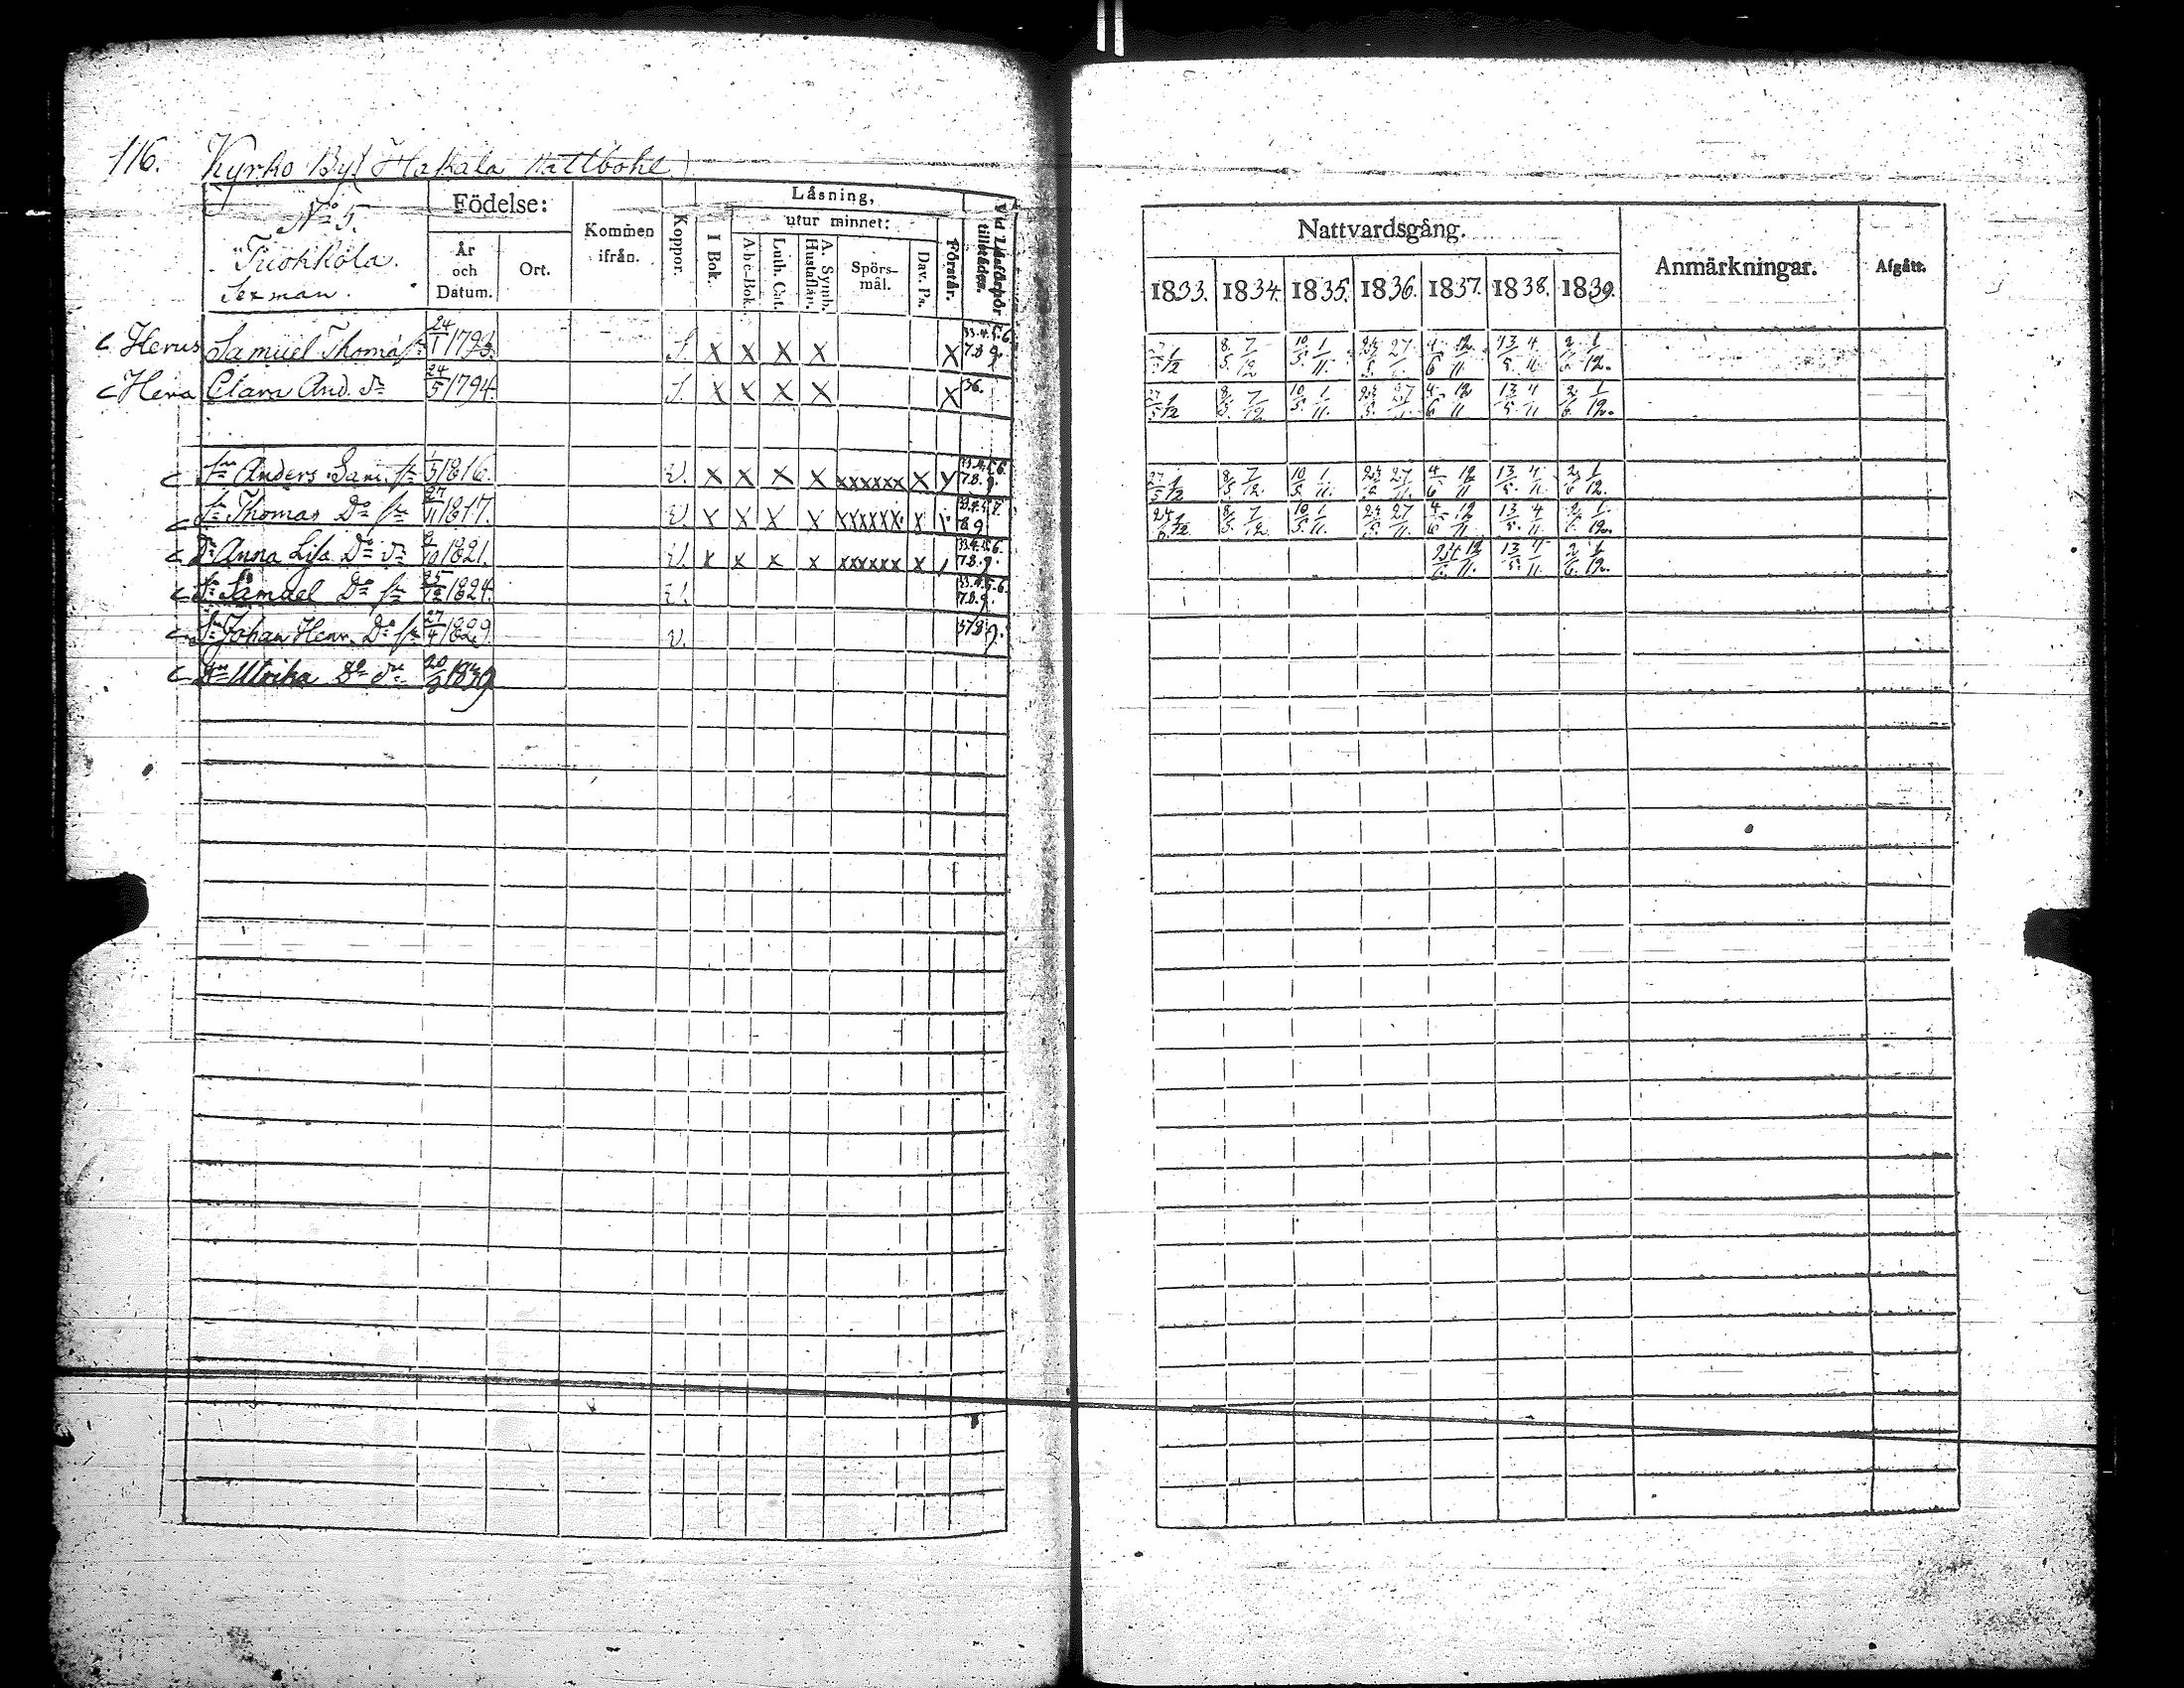 116. Kyrko By (Hakala Rattbohl)
No 5.
Födelse:
Kommen ifrån.
Koppor.
Läsning,
I Bok.
utur minnet:
Förstår.
Vid Läsförhör tillstädes.
Tuokkola.
Sexman.
År och Datum.
Ort.
Abc-Bok.
Luth. Cat.
A. Symb. Hustaflan.
Spörsmål.
Dav. Ps.
Nattvardsgång.
Anmärkningar.
Afgått.
1833. 1834. 1835. 1836. 1837. 1838. 1839.
Samuel Thomas sn 24/1 1793. S. X X X X X 33.4.5.6 7.8.9. 8/5 7/12 10/5 1/11. 27/11. 4/6 12/11 13/5. 4/11 2/6 1/12.
Clara And. dr 24/5 1794. S. X X X X X 36. 8/5. 7/12 10/5. 1/11. 27/11. 4/6 12/11 13/5. 4/11 2/6. 1/12.
Sn Anders Sam. sn 1/5 1816. V. X X X X XXXXXX X 33.4.5.6. 7.8.9. 8/5 7/12. 10/5. 1/11. 27/11. 4/6 12/11 13/5. 4/11. 2/6 1/12.
Sn Thomas Do sn 27/11 1817. V. X X X X XXXXXX X 8.9 8/5 7/12. 10/5. 1/11. 27/11. 4/6 12/11 13/5. 4/11. 2/6. 1/12.
Dr Anna Lisa Do dr 1821. V. X X X X XXXXXX X 33.4.5.6. 7.8.9. 12/11. 13/5. 4/11. 2/6. 1/12.
Sn Samuel Do sn 25/12 1824. V. 33.4.5.6. 7.8.9.
Sn Johan Henr. Do sn 27/4 1829. V. 37.8.9.
Dr Ulrika Do dr 1839